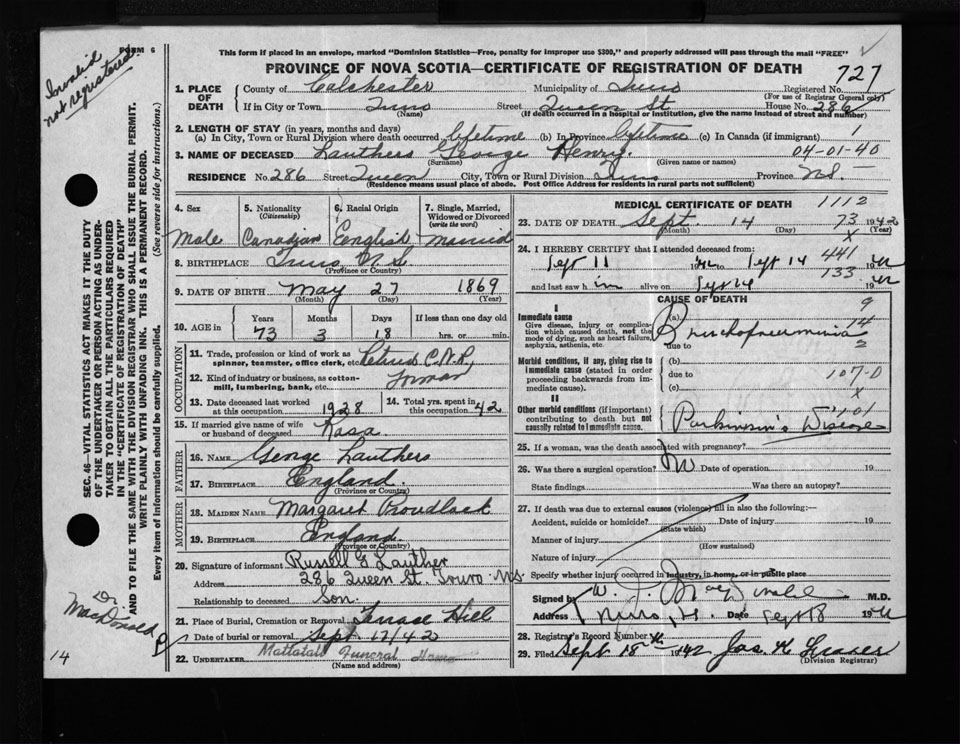 Invalid
not registered.
FORM 6
This form if placed in an envelope, marked "Dominion Statistics—Free, penalty for improper use $300," and properly addressed will pass through the mail "FREE"
PROVINCE OF NOVA SCOTIA—CERTIFICATE OF REGISTRATION OF DEATH
727
1. PLACE OF DEATH
County of Colchester Municipality of Truro Registered No.
(For use of Registrar General only)
If in City or Town Truro Street Queen St House No. 286
(Name) (If death occurred in a hospital or institution, give the name instead of street and number)
2. LENGTH OF STAY (in years, months and days)
(a) In City, Town or Rural Division where death occurred lifetime (b) In Province lifetime (c) In Canada (if immigrant)
3. NAME OF DECEASED Lauthers George Henry. 04-01-40
(Surname) (Given name or names)
RESIDENCE No. 286 Street Queen City, Town or Rural Division Truro Province N.S.
(Residence means usual place of abode. Post Office Address for residents in rural parts not sufficient)
4. Sex
Male
5. Nationality
(Citizenship)
Canadian
6. Racial Origin
English
7. Single, Married, Widowed or Divorced
(write the word)
Married
8. BIRTHPLACE Truro N.S.
(Province or Country)
9. DATE OF BIRTH May 27 1869
(Month) (Day) (Year)
10. AGE in
Years Months Days If less than one day old
73 3 18 hrs. or min.
OCCUPATION
11. Trade, profession or kind of work as spinner, teamster, office clerk, etc. C.N.R.
12. Kind of industry or business, as cotton-mill, lumbering, bank, etc.
13. Date deceased last worked at this occupation 1928
14. Total yrs. spent in this occupation 42
15. If married give name of wife or husband of deceased Rosa
FATHER
16. NAME George Lauthers
17. BIRTHPLACE England
(Province or Country)
MOTHER
18. MAIDEN NAME Margaret
19. BIRTHPLACE England
(Province or Country)
20. Signature of informant Russell G Lauther
Address 286 Queen St. Truro N.S.
Relationship to deceased Son.
21. Place of Burial, Cremation or Removal Terrace Hill
Date of burial or removal Sept. 17/42
22. UNDERTAKER Mattatall Funeral Home
(Name and address)
MEDICAL CERTIFICATE OF DEATH 1112
23. DATE OF DEATH Sept 14 1942
(Month) (Day) (Year)
73
x
24. I HEREBY CERTIFY that I attended deceased from:
Sept 11 1942 to Sept 14 1942
441
133
and last saw him alive on Sept 14 1942
CAUSE OF DEATH
I
Immediate cause
Give disease, injury or complication which caused death, not the mode of dying, such as heart failure, asphyxia, asthenia, etc.
(a) Bronchopneumonia
due to
Morbid conditions, if any, giving rise to immediate cause (stated in order proceeding backwards from immediate cause).
(b)
due to
(c)
107-0
x
II
Other morbid conditions (if important) contributing to death but not causally related to immediate cause.
Parkinson's Disease
25. If a woman, was the death associated with pregnancy?
26. Was there a surgical operation? No Date of operation 19
State findings Was there an autopsy?
27. If death was due to external causes (violence) fill in also the following:—
Accident, suicide or homicide? Date of injury 19
(State which)
Manner of injury
(How sustained)
Nature of injury
Specify whether injury occurred in industry, in home, or in public place
Signed by M.D.
Address Truro, N.S. Date Sept 18 1942
28. Registrar's Record Number
29. Filed Sept 18th 1942 Jas. K Fraser
(Division Registrar)
SEC. 46—VITAL STATISTICS ACT MAKES IT THE DUTY
OF THE UNDERTAKER OR PERSON ACTING AS UNDER-
TAKER TO OBTAIN ALL THE PARTICULARS REQUIRED
IN THE "CERTIFICATE OF REGISTRATION OF DEATH"
AND TO FILE THE SAME WITH THE DIVISION REGISTRAR WHO SHALL ISSUE THE BURIAL PERMIT.
WRITE PLAINLY WITH UNFADING INK. THIS IS A PERMANENT RECORD.
Every item of Information should be carefully supplied. (See reverse side for instructions.)
Dr.
MacDonald
14